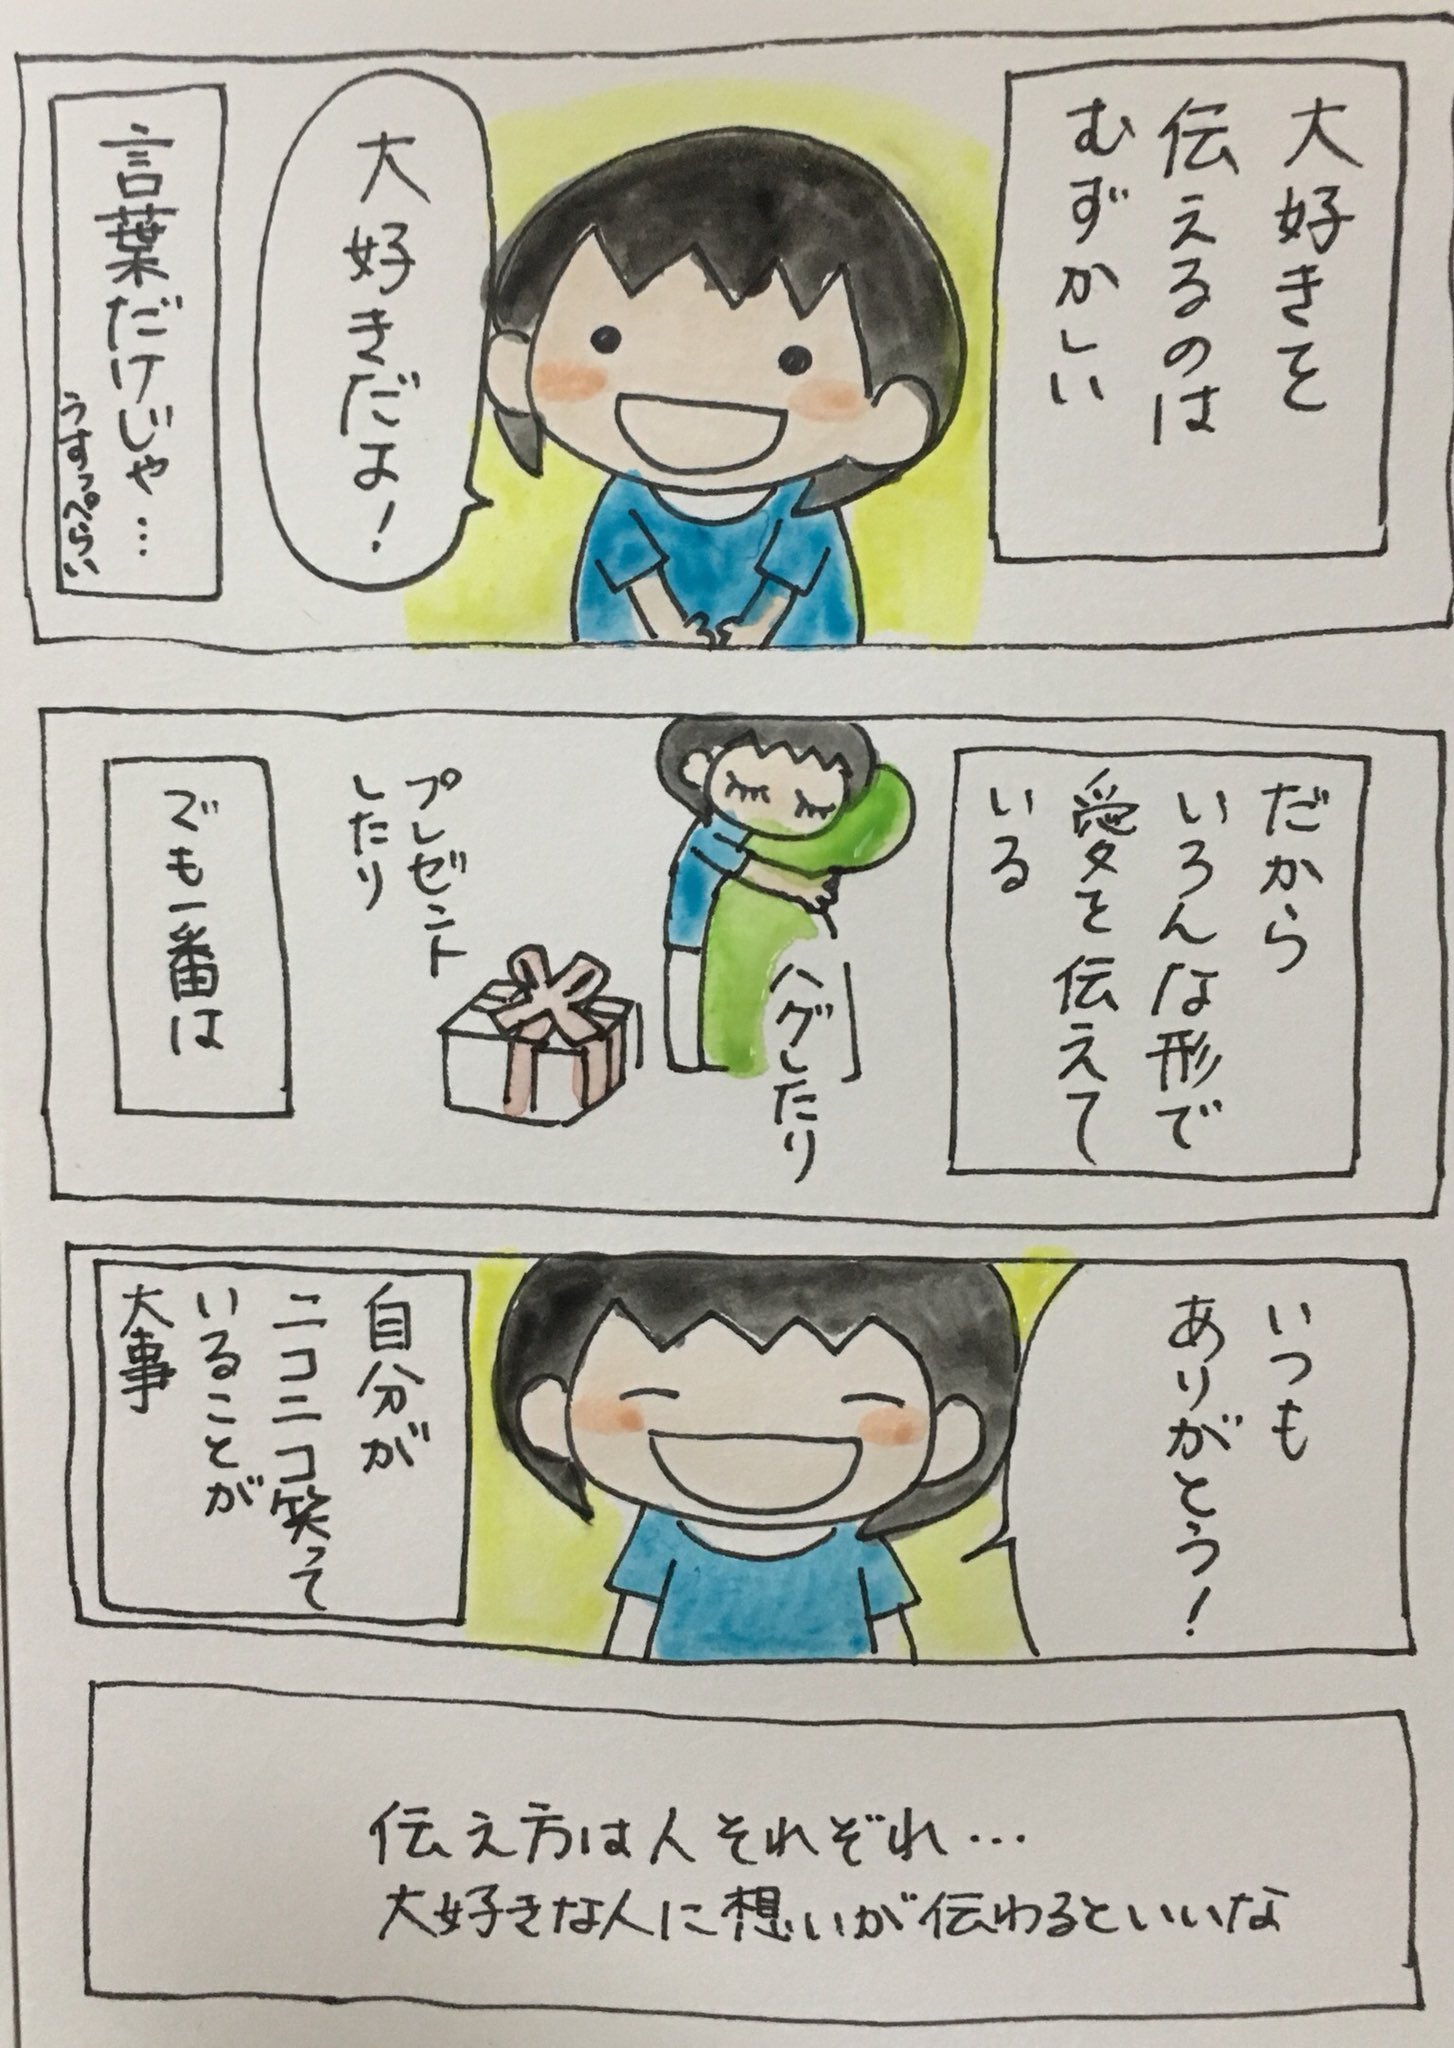 大好きを
伝えるのは
むずかしい
大好きだよ!
言葉だけじゃ…
うすっぺらい
だから
いろんな形で
愛を伝えて
いる
ハグしたり
プレゼント
したり
でも一番は
いつも
ありがとう!
自分が
ニコニコ笑って
いることが
大事
伝え方は人それぞれ…
大好きな人に想いが伝わるといいな